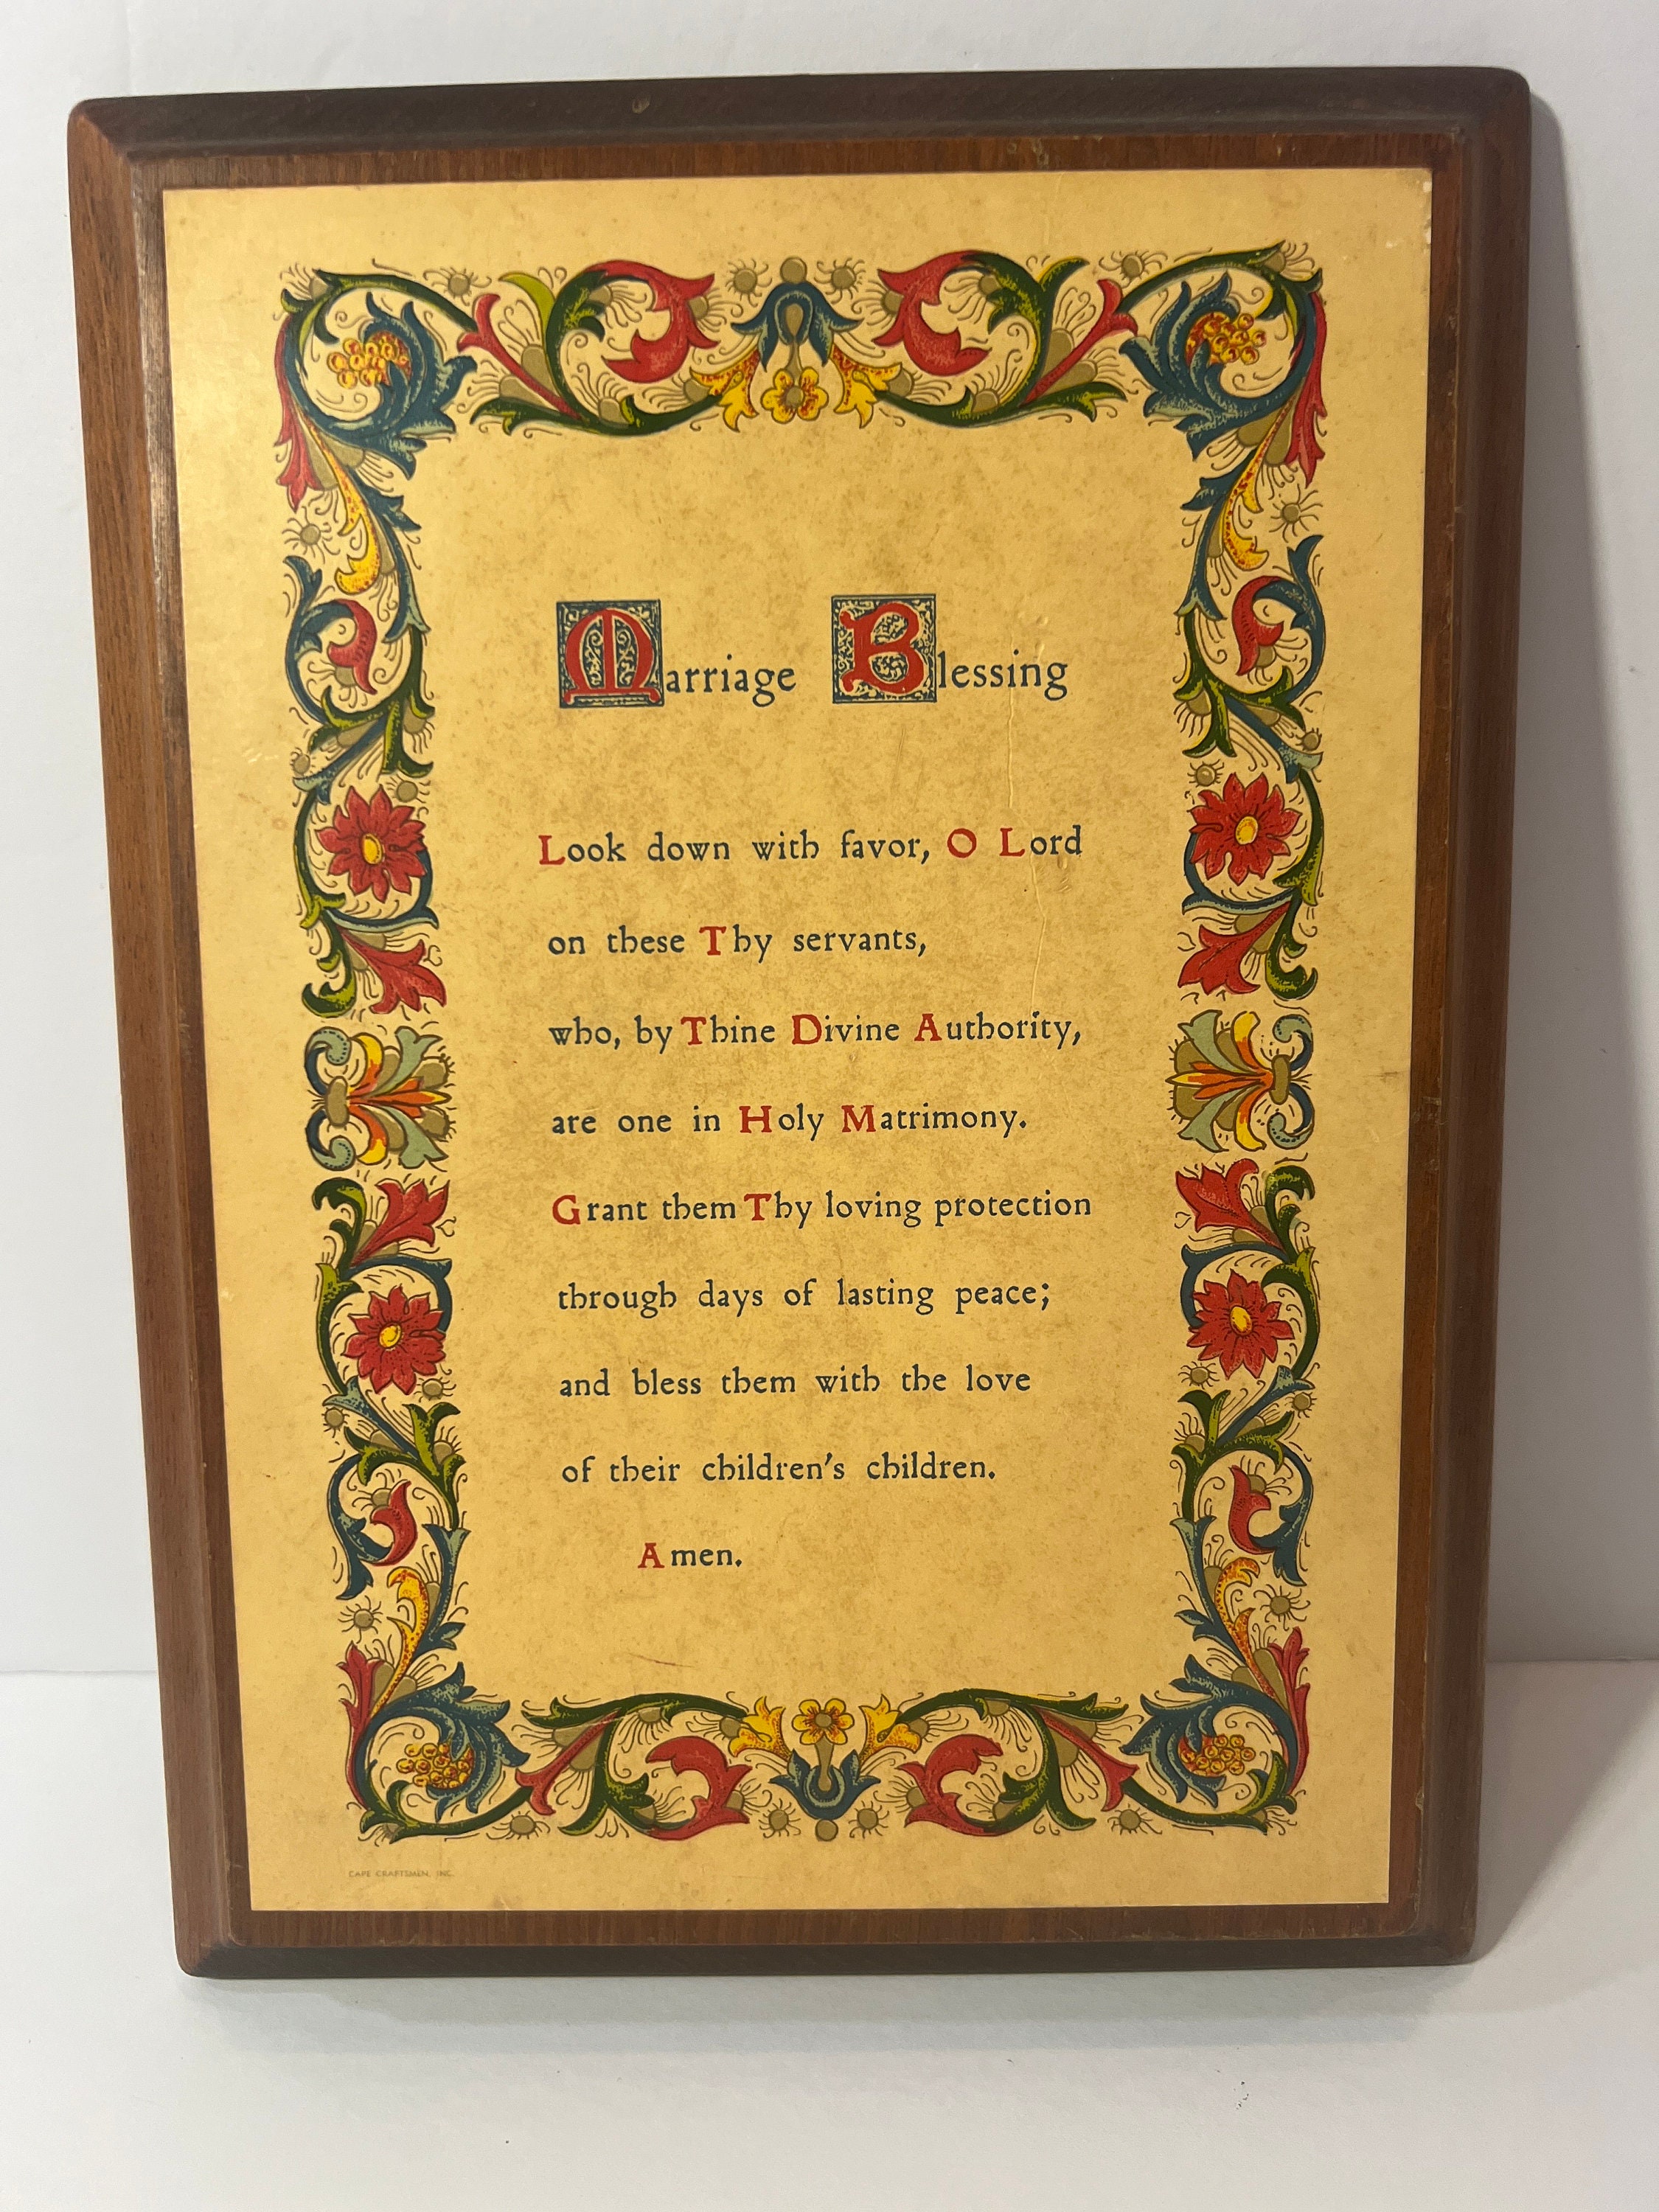 Marriage Blessing
Look down with favor, O Lord
on these Thy servants,
who, by Thine Divine Authority,
are one in Holy Matrimony.
Grant them Thy loving protection
through days of lasting peace;
and bless them with the love
of their children's children.
Amen.
CAPE CRAFTSMEN, INC.